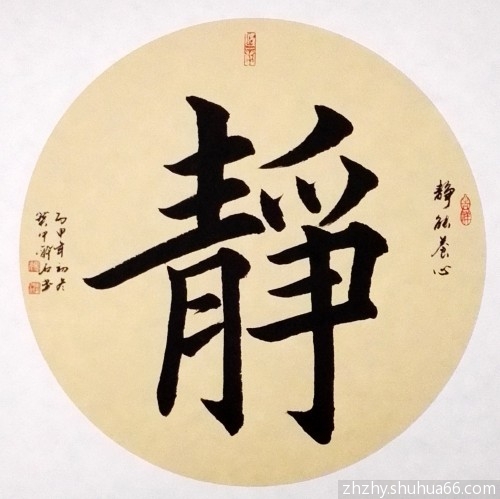 靜
靜能養心
丙申年初冬
zhzhy.shuhua66.com